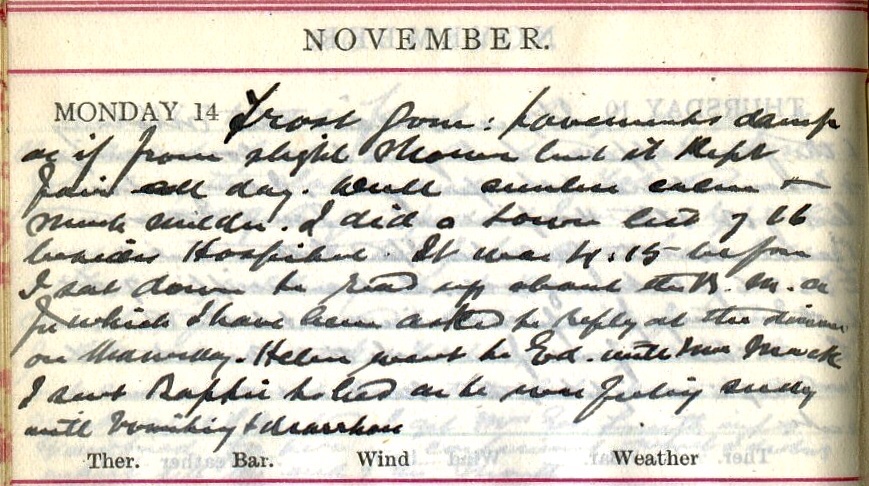 NOVEMBER.
MONDAY 14 Frost gone: pavements damp
as if from slight shower but it kept
fair all day. Dull sunless calm &
much milder. I did a town list of 66
besides Hospital. It was 4.15 before
I sat down to read up about the B. M. A
for which I have been asked to reply at the dinner
on Thursday. Helen went to Ed. with Mrs Mack
I sent to bed as he was feeling seedy
with vomiting & diarrhoea
Ther. Bar. Wind Weather